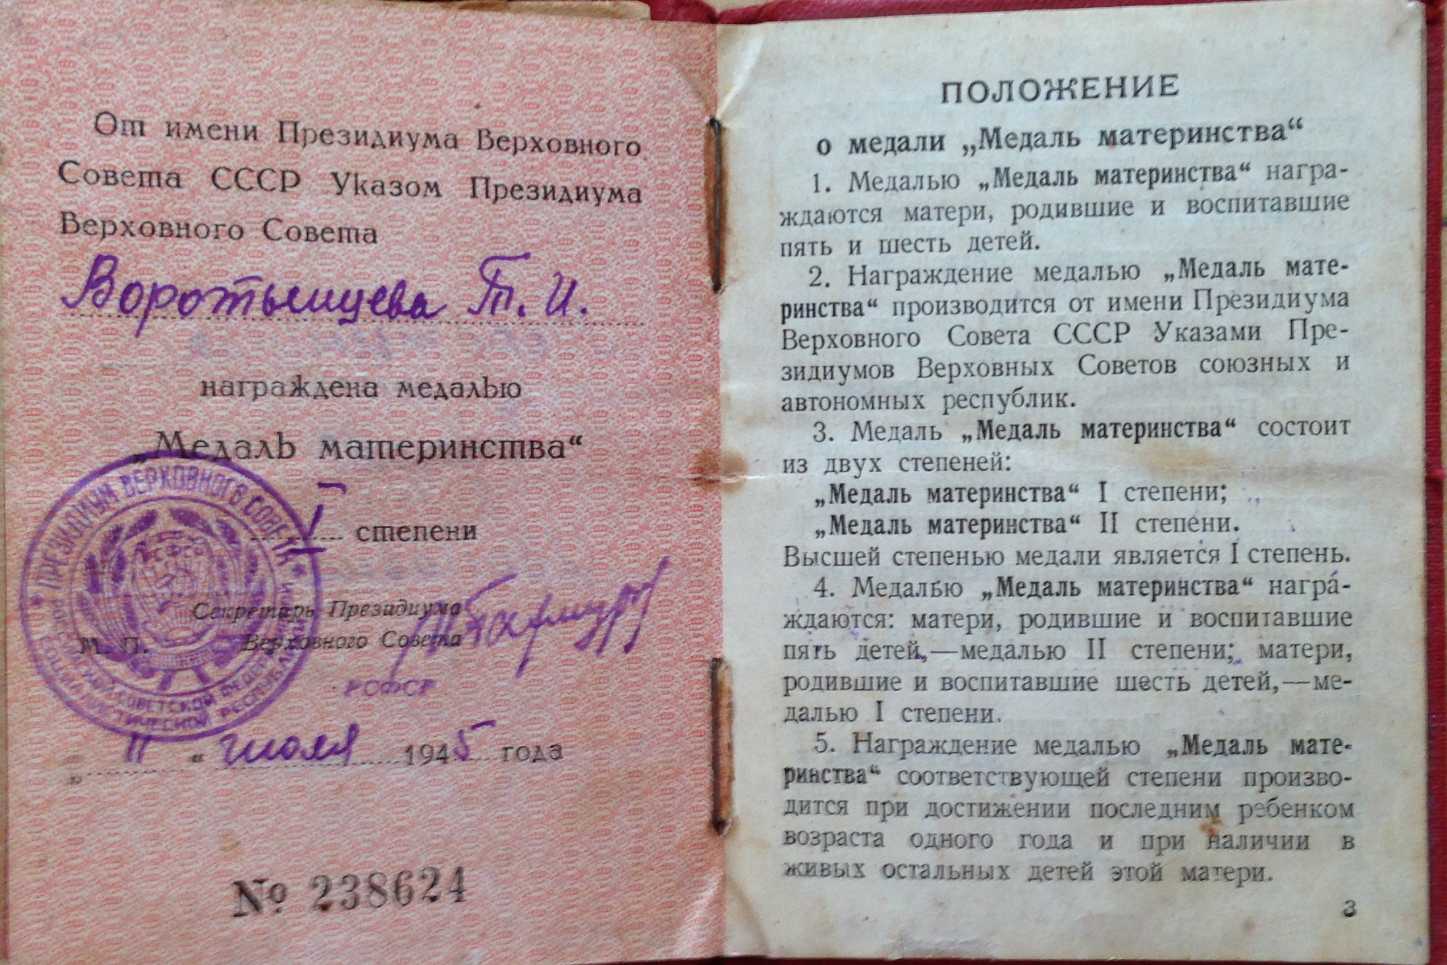 От имени Президиума Верховного
Совета СССР Указом Президиума
Верховного Совета
Воротынцева Т. И.
награждена медалью
„Медаль материнства“
I степени
Секретарь Президиума
М. П. Верховного Совета
РСФСР
„ 11 “ июля 1945 года
№ 238624
ПРЕЗИДИУМ ВЕРХОВНОГО СОВЕТА
РСФСР
ПОЛОЖЕНИЕ
о медали „Медаль материнства“
1. Медалью „Медаль материнства“ награ-
ждаются матери, родившие и воспитавшие
пять и шесть детей.
2. Награждение медалью „Медаль мате-
ринства“ производится от имени Президиума
Верховного Совета СССР Указами Пре-
зидиумов Верховных Советов союзных и
автономных республик.
3. Медаль „Медаль материнства“ состоит
из двух степеней:
„Медаль материнства“ I степени;
„Медаль материнства“ II степени.
Высшей степенью медали является I степень.
4. Медалью „Медаль материнства“ награ-
ждаются: матери, родившие и воспитавшие
пять детей,—медалью II степени; матери,
родившие и воспитавшие шесть детей,—ме-
далью I степени.
5. Награждение медалью „Медаль мате-
ринства“ соответствующей степени произво-
дится при достижении последним ребенком
возраста одного года и при наличии в
живых остальных детей этой матери.
3